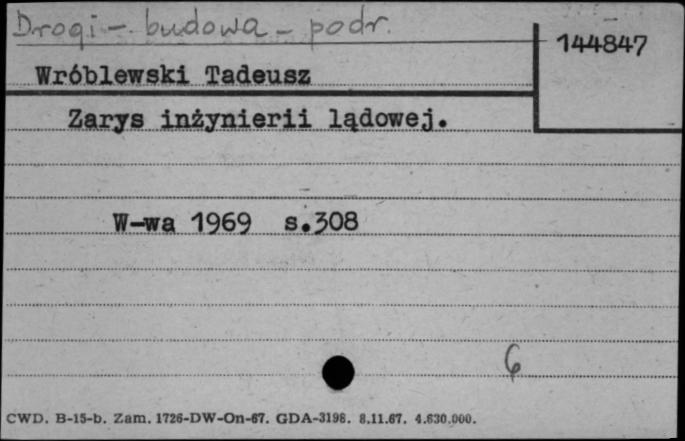 Drogi - budowa - podr.
144847
Wróblewski Tadeusz
Zarys inżynierii lądowej.
W-wa 1969 s.308
6
CWD. B-15-b. Zam. 1726-DW-On-67. GDA-3198. 8.11.67. 4.630.000.